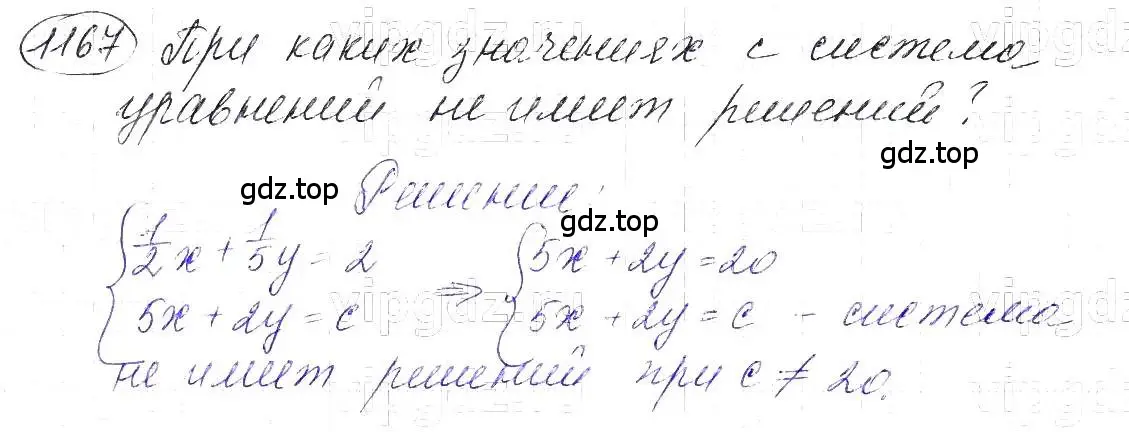 1167 При каких значениях с система
уравнений не имеет решений?
gdz.top
gdz.top Решение:
gdz.top
{ 1/2x + 1/5y = 2 => { 5x + 2y = 20
{ 5x + 2y = c { 5x + 2y = c - система
не имеет решений при c ≠ 20.